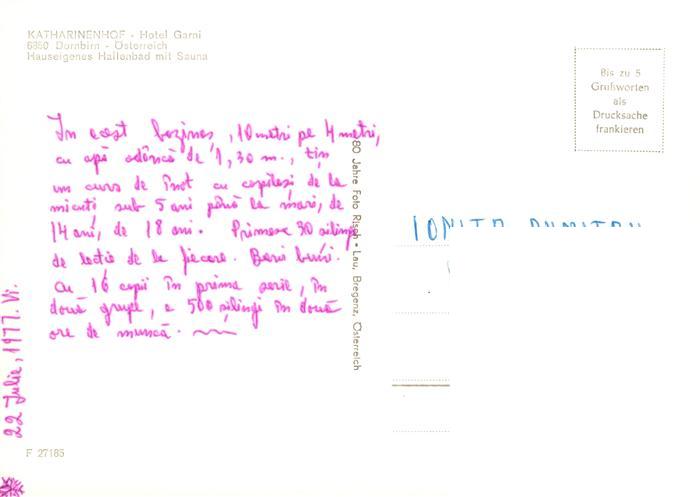 KATHARINENHOF - Hotel Garni
6850 Dornbirn - Österreich
Hauseigenes Hallenbad mit Sauna
Bis zu 5
Grußworten
als
Drucksache
frankieren
In acest bazinaș, 10 metri pe 4 metri,
cu apă adâncă de 1,30 m., țin
un curs de înot cu copilași de la
micuți sub 5 ani până la mari, de
14 ani, de 18 ani. Primesc 30 șilingi
de lecție de la fiecare. Bani buni.
Cu 16 copii în prima serie, în
două grupe, e 500 șilingi în două
ore de muncă.
22 Julie, 1977. Vi.
80 Jahre Foto Risch-Lau, Bregenz, Österreich
F 27185